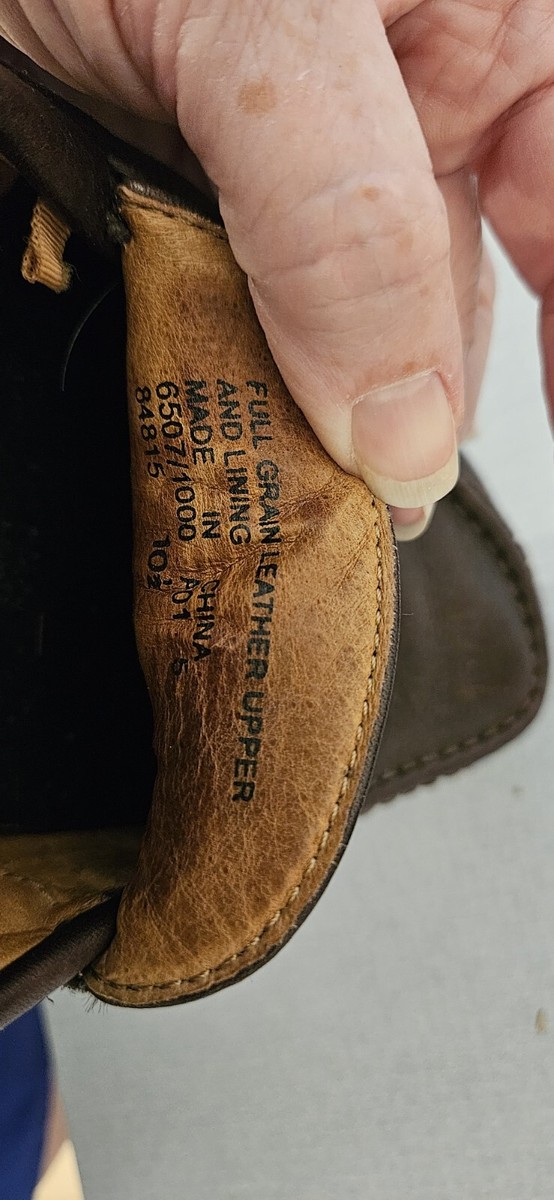 FULL GRAIN LEATHER UPPER
AND LINING
MADE IN CHINA
6507/1000 A01
84815 10½